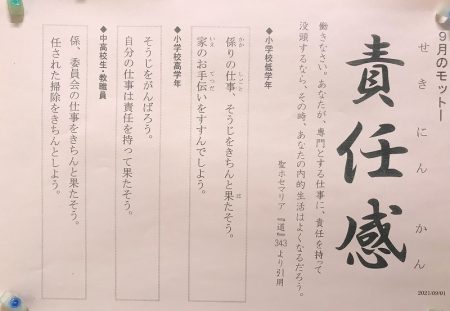 9月のモットー
せきにんかん
責任感
働きなさい。あなたが、専門とする仕事に、責任を持って
没頭するなら、その時、あなたの内的生活はよくなるだろう。
聖ホセマリア『道』343より引用
◆小学校低学年
係りの仕事、そうじをきちんと果たそう。
家のお手伝いをすすんでしよう。
◆小学校高学年
そうじをがんばろう。
自分の仕事は責任を持って果たそう。
◆中高校生・教職員
係、委員会の仕事をきちんと果たそう。
任された掃除をきちんとしよう。
2021/09/01